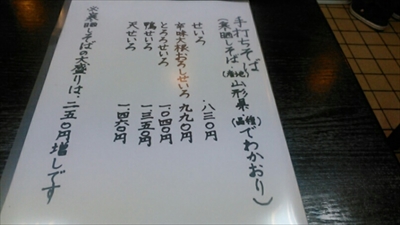 手打ちそば
(寒晒しそば・(産地)山形県(品種)でわかおり)
せいろ 八三〇円
辛味大根おろしせいろ 九九〇円
とろろせいろ 一〇四〇円
鴨せいろ 一三五〇円
天せいろ 一四六〇円
※寒晒しそばの大盛りは、二五〇円増しです